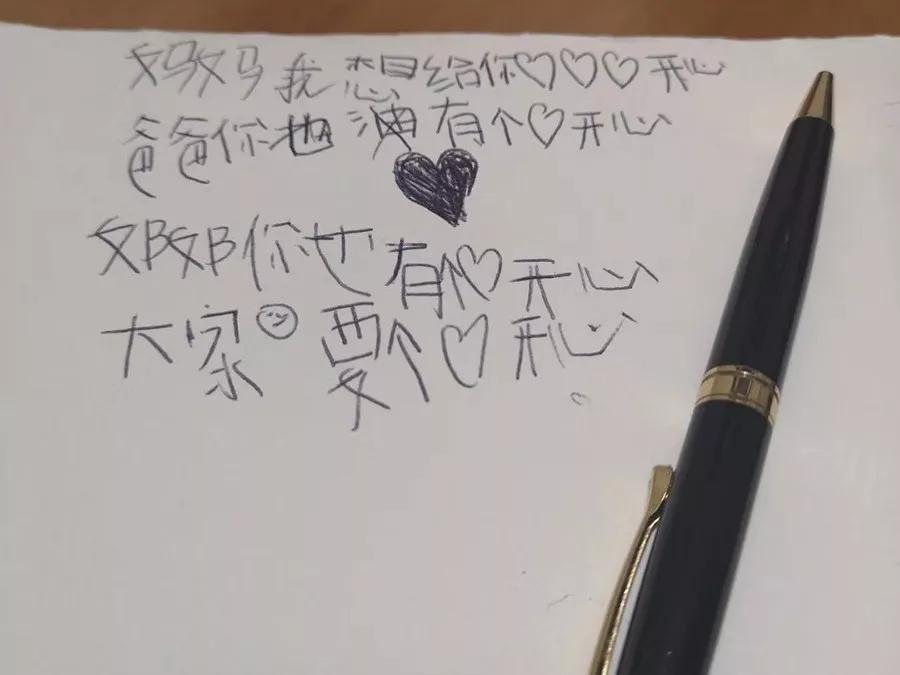 妈妈我想给你♡♡♡开心
爸爸你也有个♡开心
你也有个♡开心
大家要个♡开心